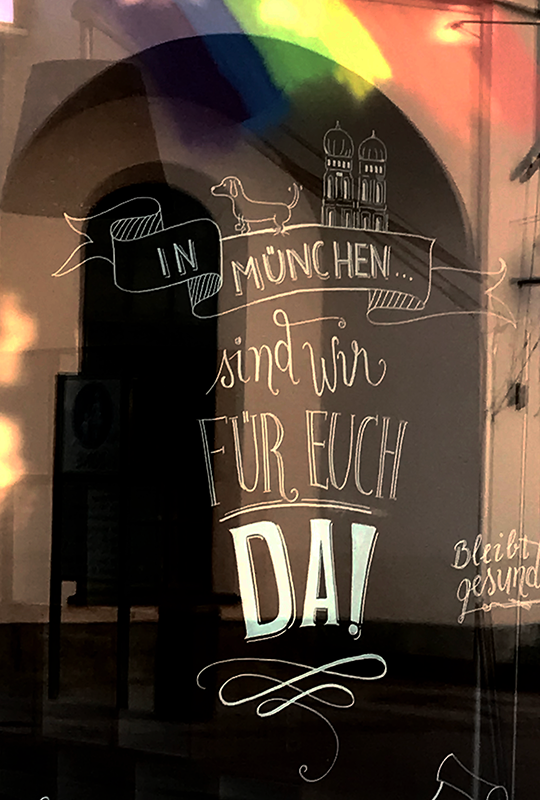 IN MÜNCHEN...
sind wir
FÜR EUCH
DA!
Bleibt
gesund